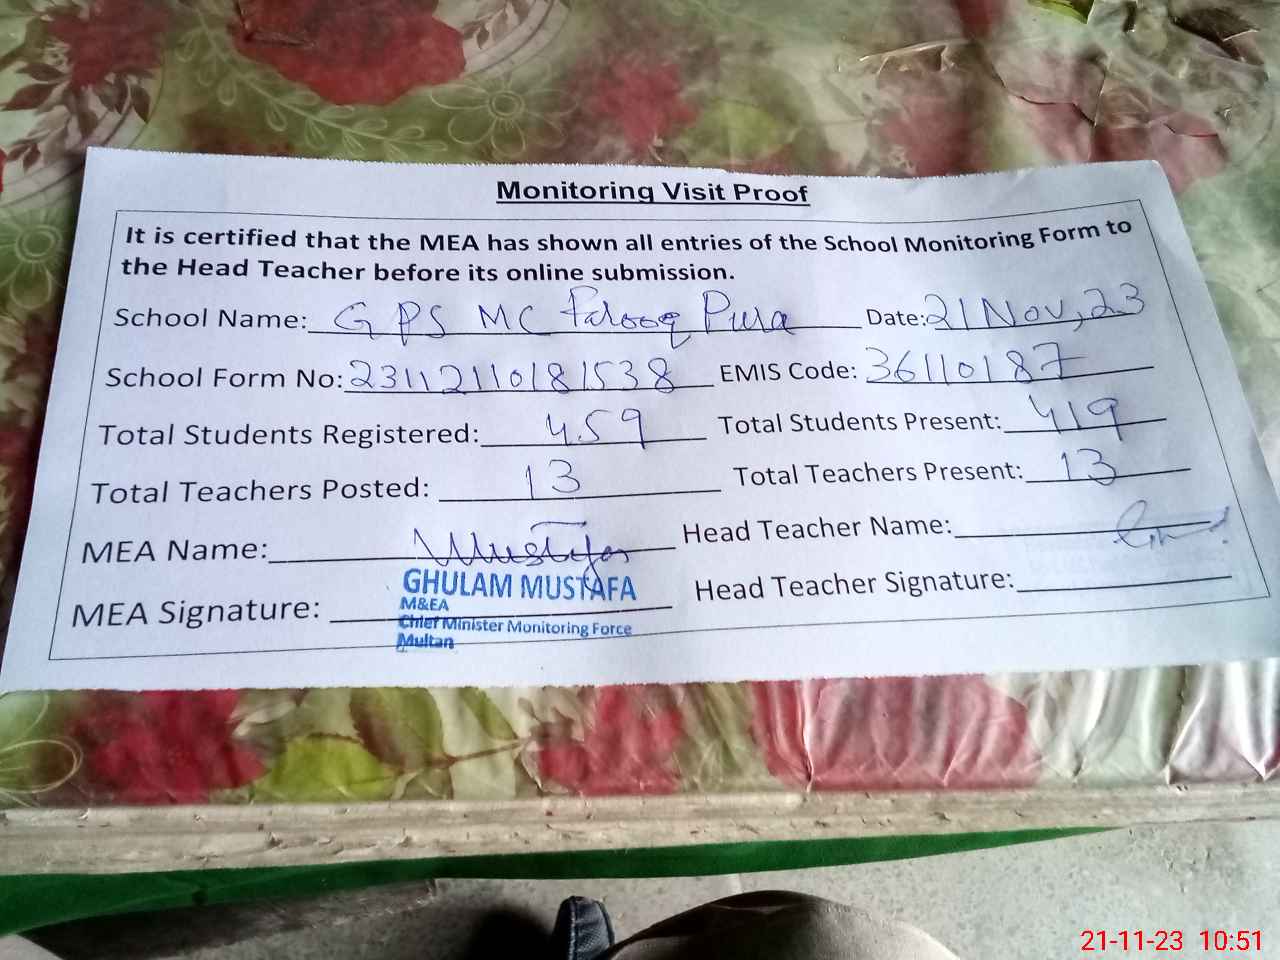 Monitoring Visit Proof
It is certified that the MEA has shown all entries of the School Monitoring Form to
the Head Teacher before its online submission.
School Name: GPS MC Farooq Pura Date: 21 Nov, 23
School Form No: 23112110181538 EMIS Code: 36110187
Total Students Registered: 459 Total Students Present: 419
Total Teachers Posted: 13 Total Teachers Present: 13
MEA Name: Mustafa Head Teacher Name:
GHULAM MUSTAFA
MEA Signature: Head Teacher Signature:
M&EA
Chief Minister Monitoring Force
Multan
21-11-23 10:51